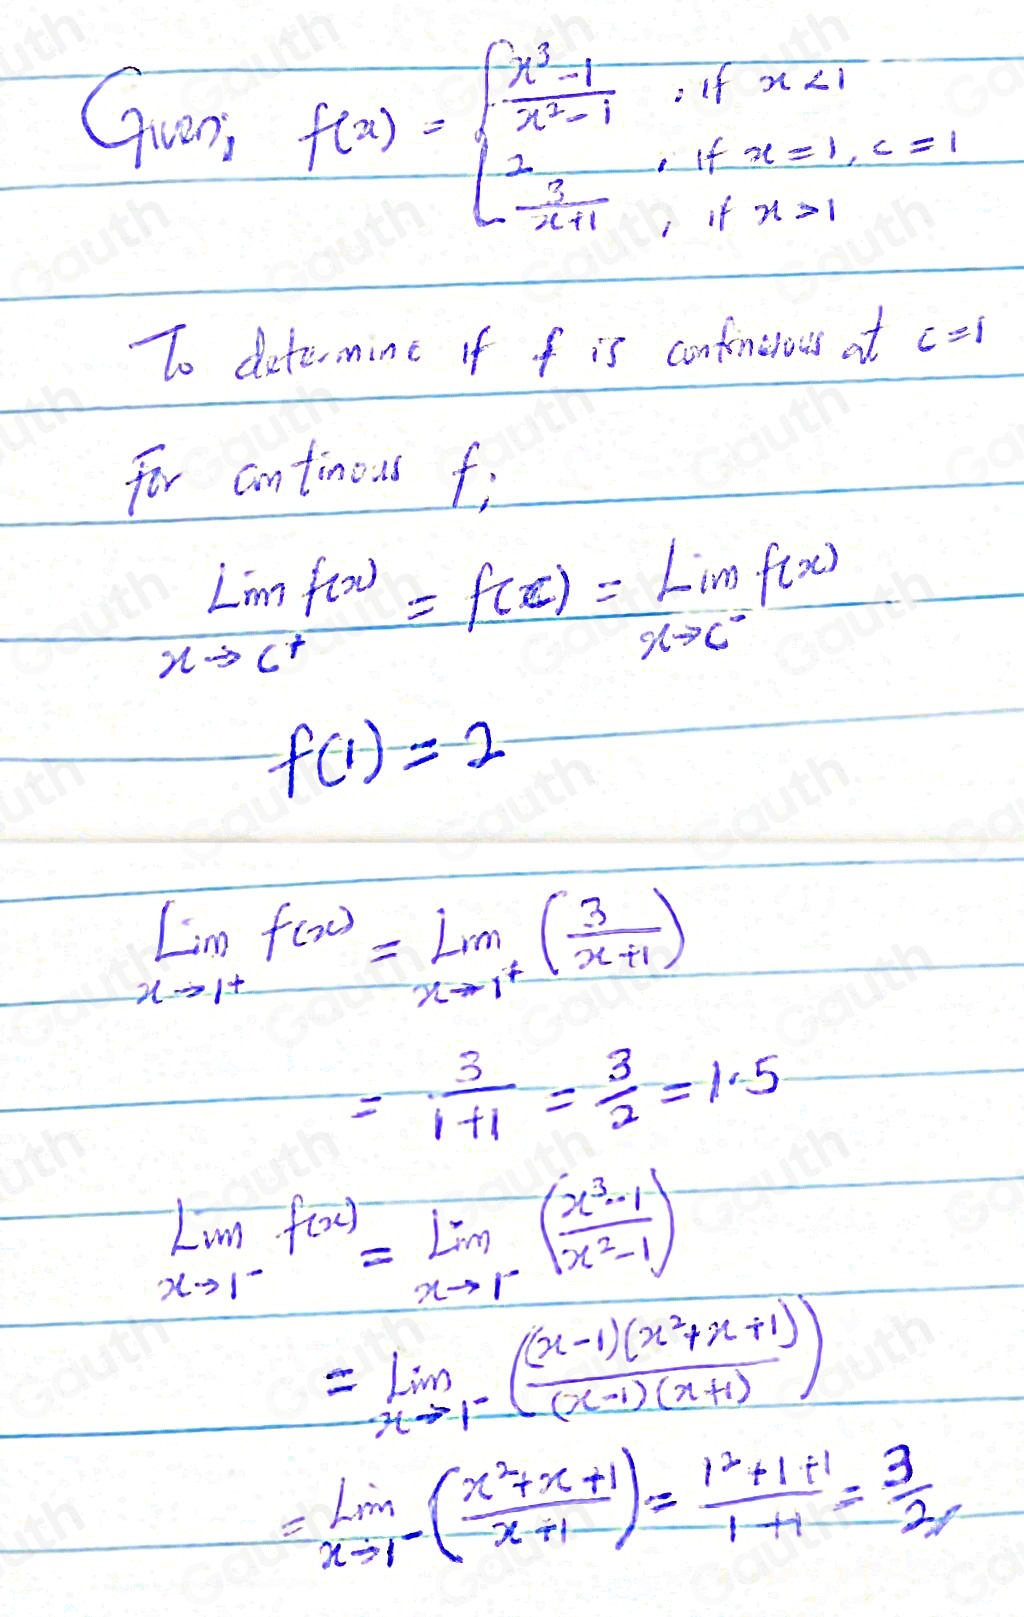 Given; f(x) = { x³-1 / x²-1 , if x<1
2 , if x=1, c=1
3 / x+1 , if x>1
To determine if f is continuous at c=1
For continous f;
Lim x→c⁺ f(x) = f(c) = Lim x→c⁻ f(x)
f(1) = 2
Lim x→1⁺ f(x) = Lim x→1⁺ (3 / x+1)
= 3 / 1+1 = 3/2 = 1.5
Lim x→1⁻ f(x) = Lim x→1⁻ (x³-1 / x²-1)
= Lim x→1⁻ ((x-1)(x²+x+1) / (x-1)(x+1))
= Lim x→1⁻ (x²+x+1 / x+1) = 1²+1+1 / 1+1 = 3/2